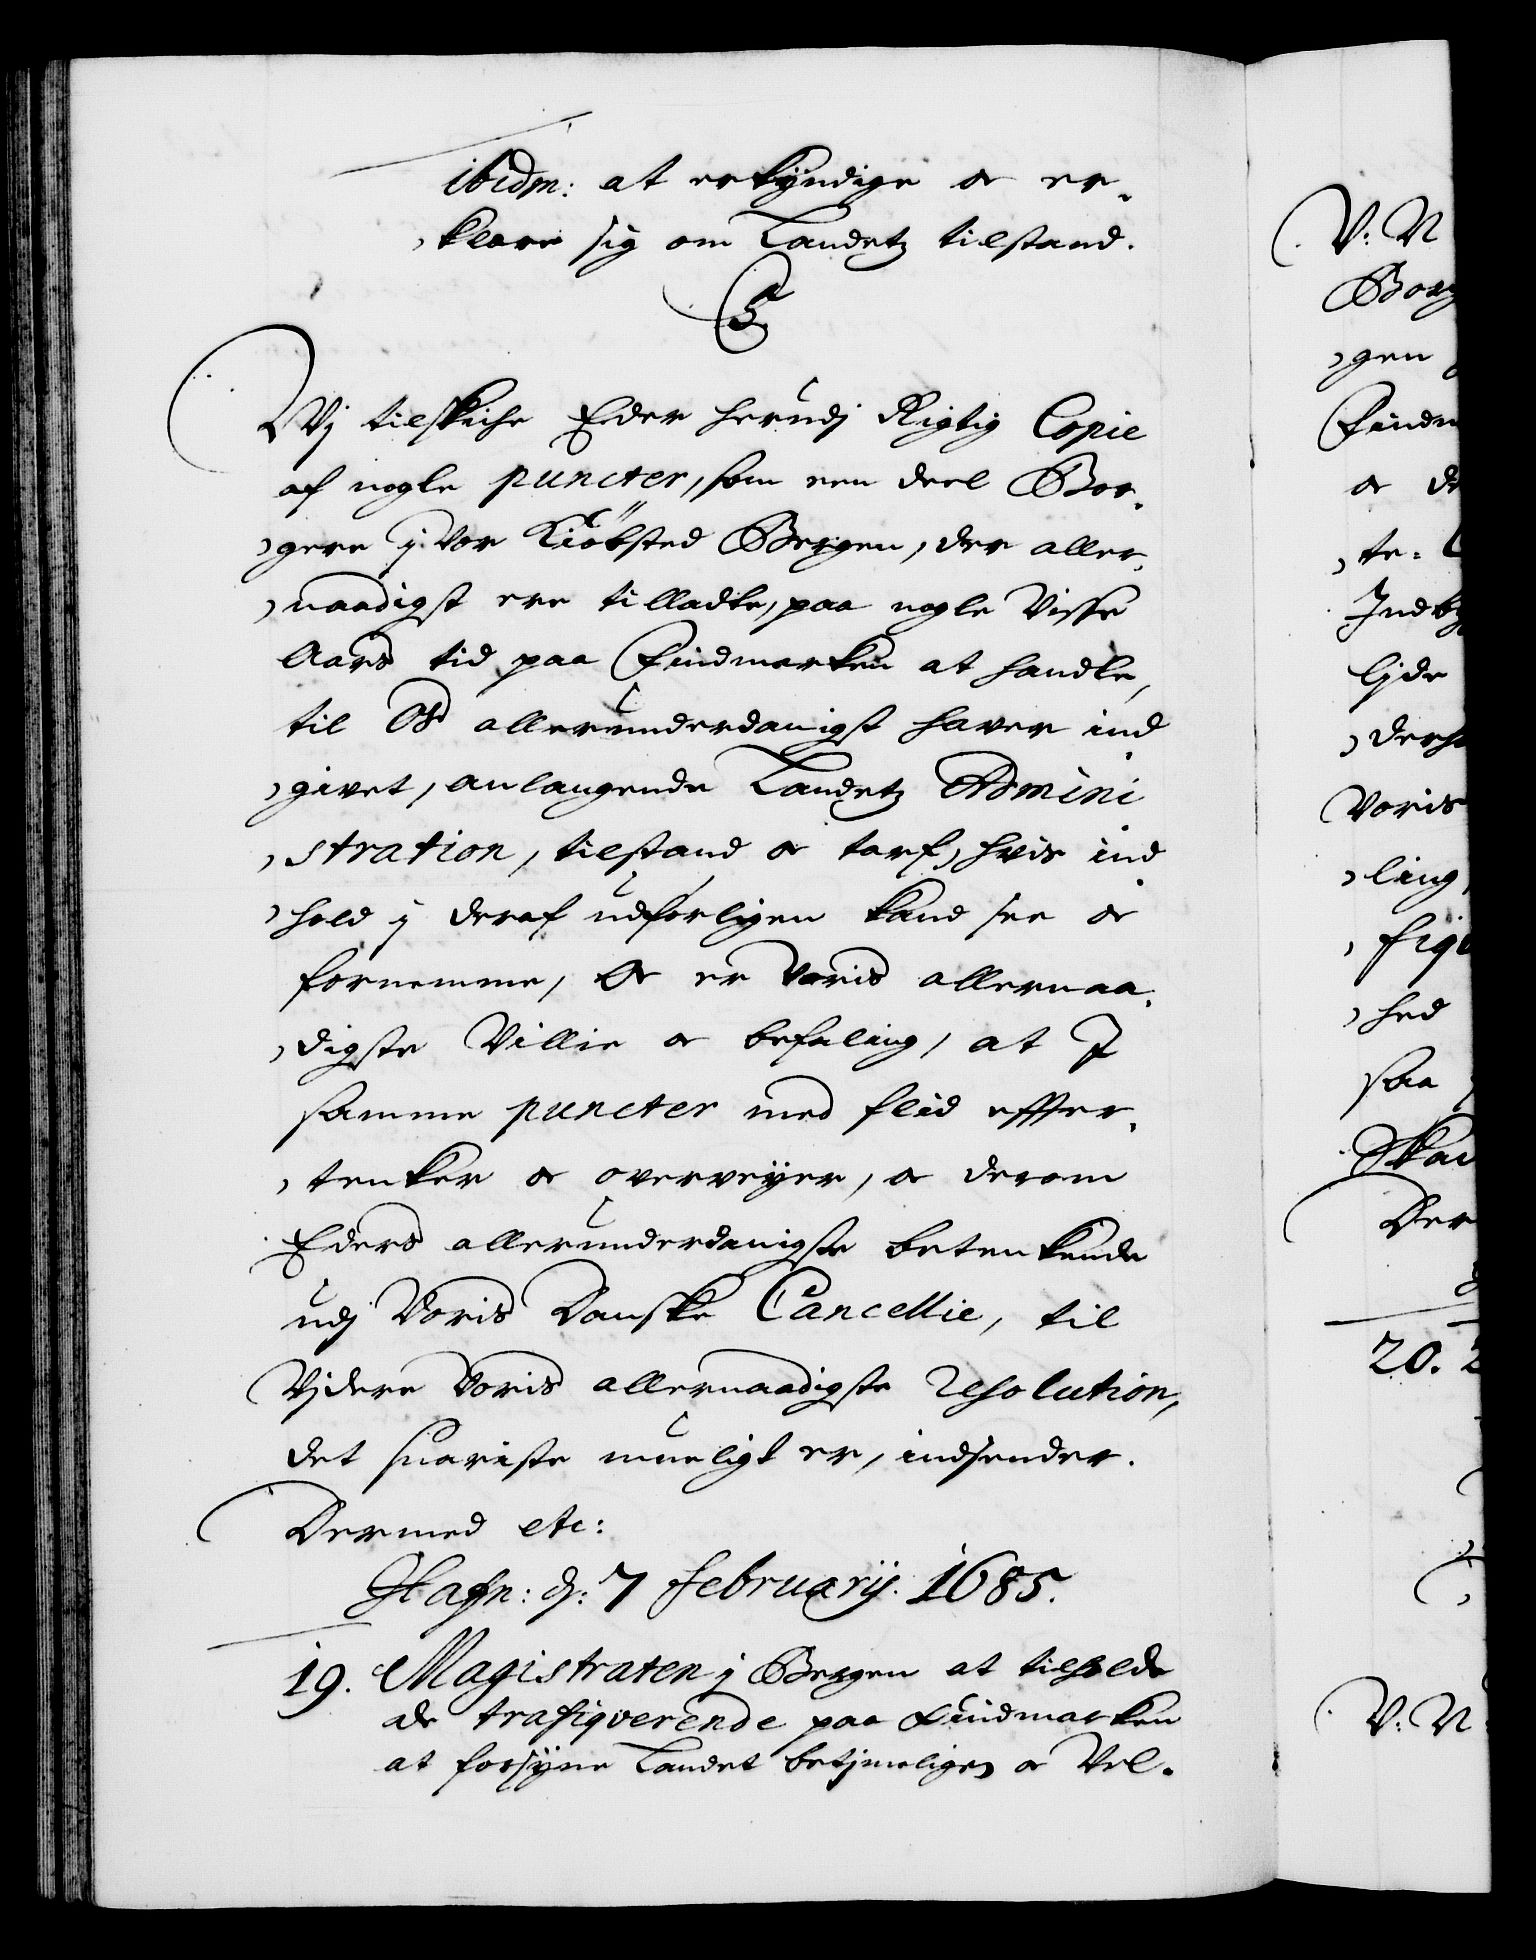 ibidm: at erkÿndige oc er-
klære sig om Landetz tilstand.
C5
Wj tilskiche Eder herudj Rigtig Copie
af nogle puncter, som een deel Bor-
gere j Vor Kiöbsted Bergen, der aller-
naadigst ere tilladte, paa nogle Visse
Aars tid paa Findmarken at handle,
til Os allerunderdanigst haver ind
givet, anlangende Landetz Admini
stration, tilstand oc tarf, hvis ind
hold j deraf udførligen kand see oc
fornemme, Oc er Voris allernaa-
digste Villie oc befaling, at I
samme puncter med flid effter-
tenker oc overveÿer, oc derom
Eders allerunderdanigste betenkende
udj Voris Danske Cancellie, til
Vjdere Voris allernaadigste resolution,
det snariste mueligt er, indsender.
Dermed etc:
Hafn: d: 7 februarij. 1685.
19. Magistraten j Bergen at tilholde
de trafiqverende paa Findmarken
at forsÿne Landet betjmeligen oc Vel-
V: N
Borg
gen
Findm
oc de
te-
Indby
ljde
derh
Voris
ling
fiqv
hed
saa
Skau
Der
20. 2
V: N